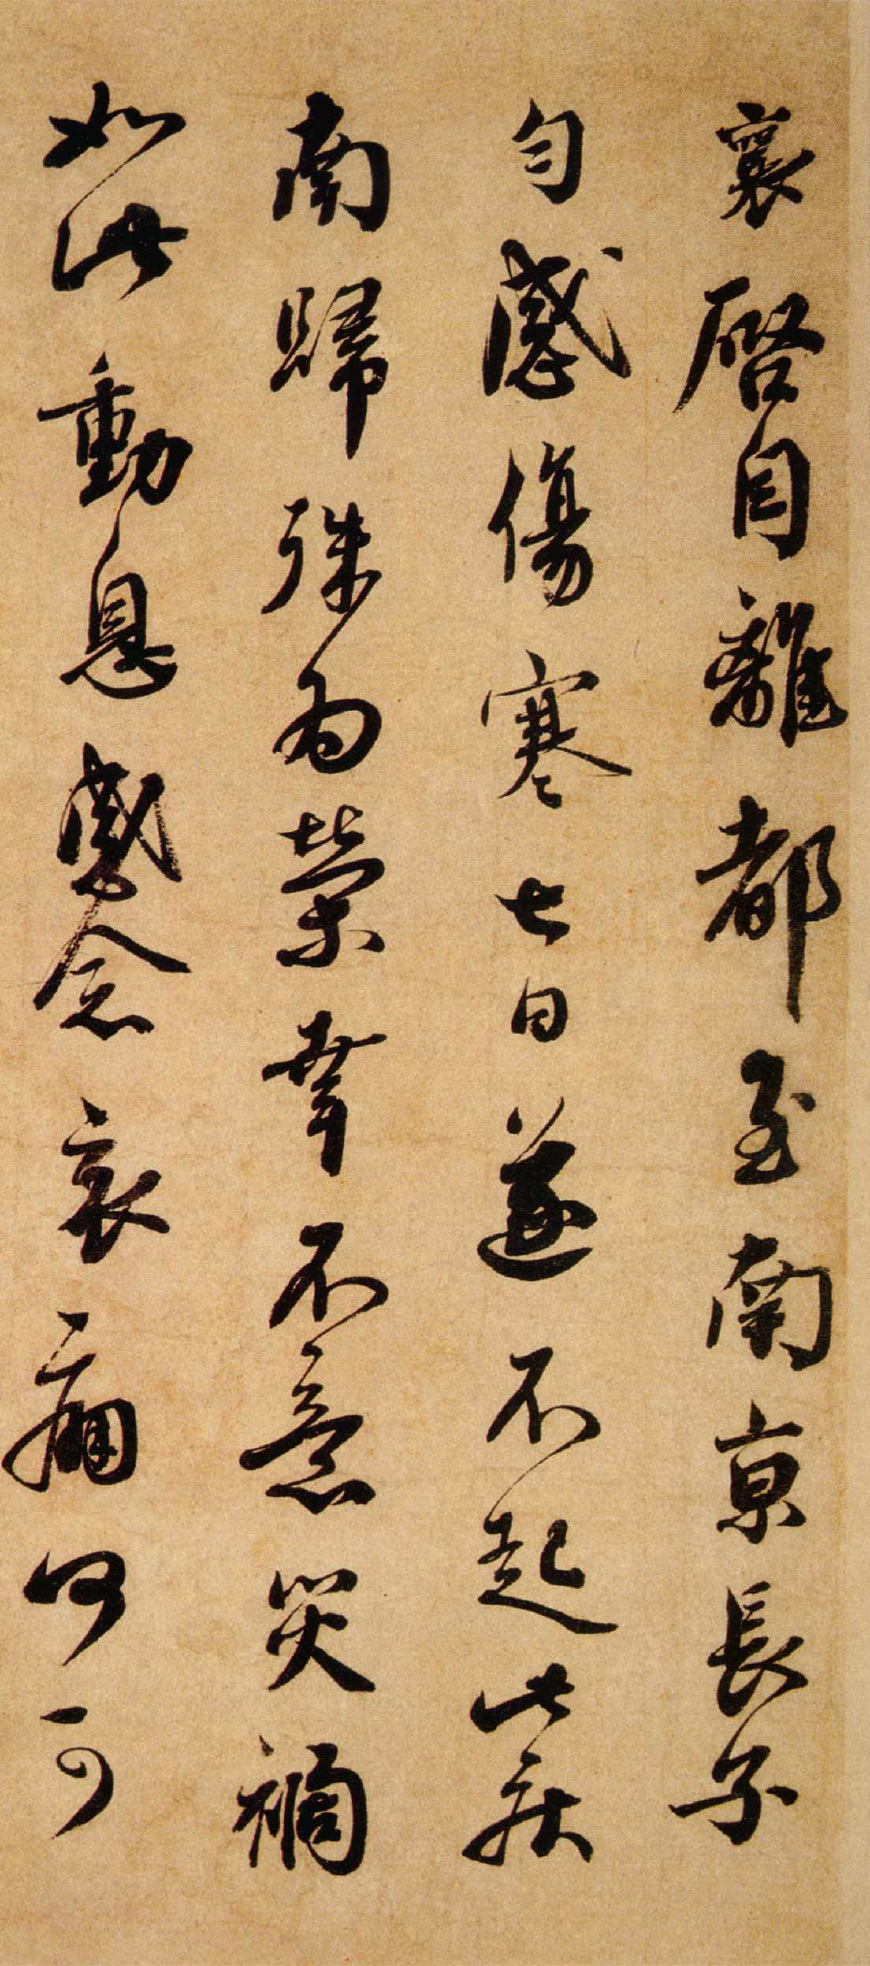 襄啓自離都至南京長子
勻感傷寒七日遂不起此疾
南歸殊為榮幸不意災禍
如此動息感念哀痛何可